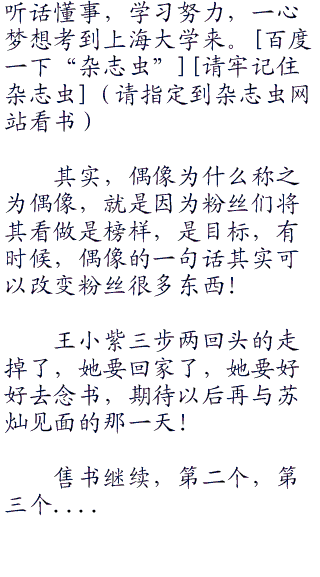 听话懂事，学习努力，一心
梦想考到上海大学来。[百度
一下“杂志虫”][请牢记住
杂志虫]（请指定到杂志虫网
站看书）
其实，偶像为什么称之
为偶像，就是因为粉丝们将
其看做是榜样，是目标，有
时候，偶像的一句话其实可
以改变粉丝很多东西！
王小紫三步两回头的走
掉了，她要回家了，她要好
好去念书，期待以后再与苏
灿见面的那一天！
售书继续，第二个，第
三个....